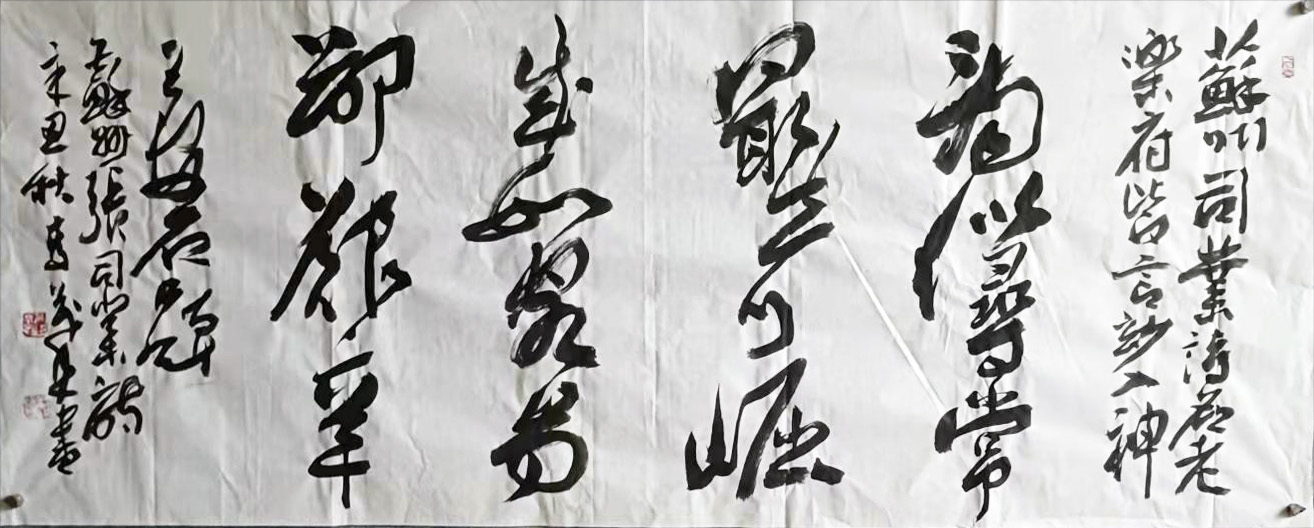 蘇州司業詩名老
楽府皆言妙入神
看似尋常
最奇崛
成如容易
卻艱辛
王安石題
蘇州張司業詩
辛丑秋書